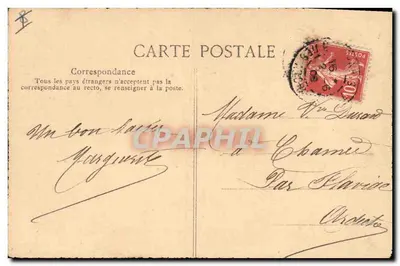 CARTE POSTALE
Correspondance
Tous les pays étrangers n'acceptent pas la
correspondance au recto, se renseigner à la poste.
Un bon
Marguerite
Madame Vve Durand
à
Par Flaviac
Ardèche
POSTES
10
CPARAMA